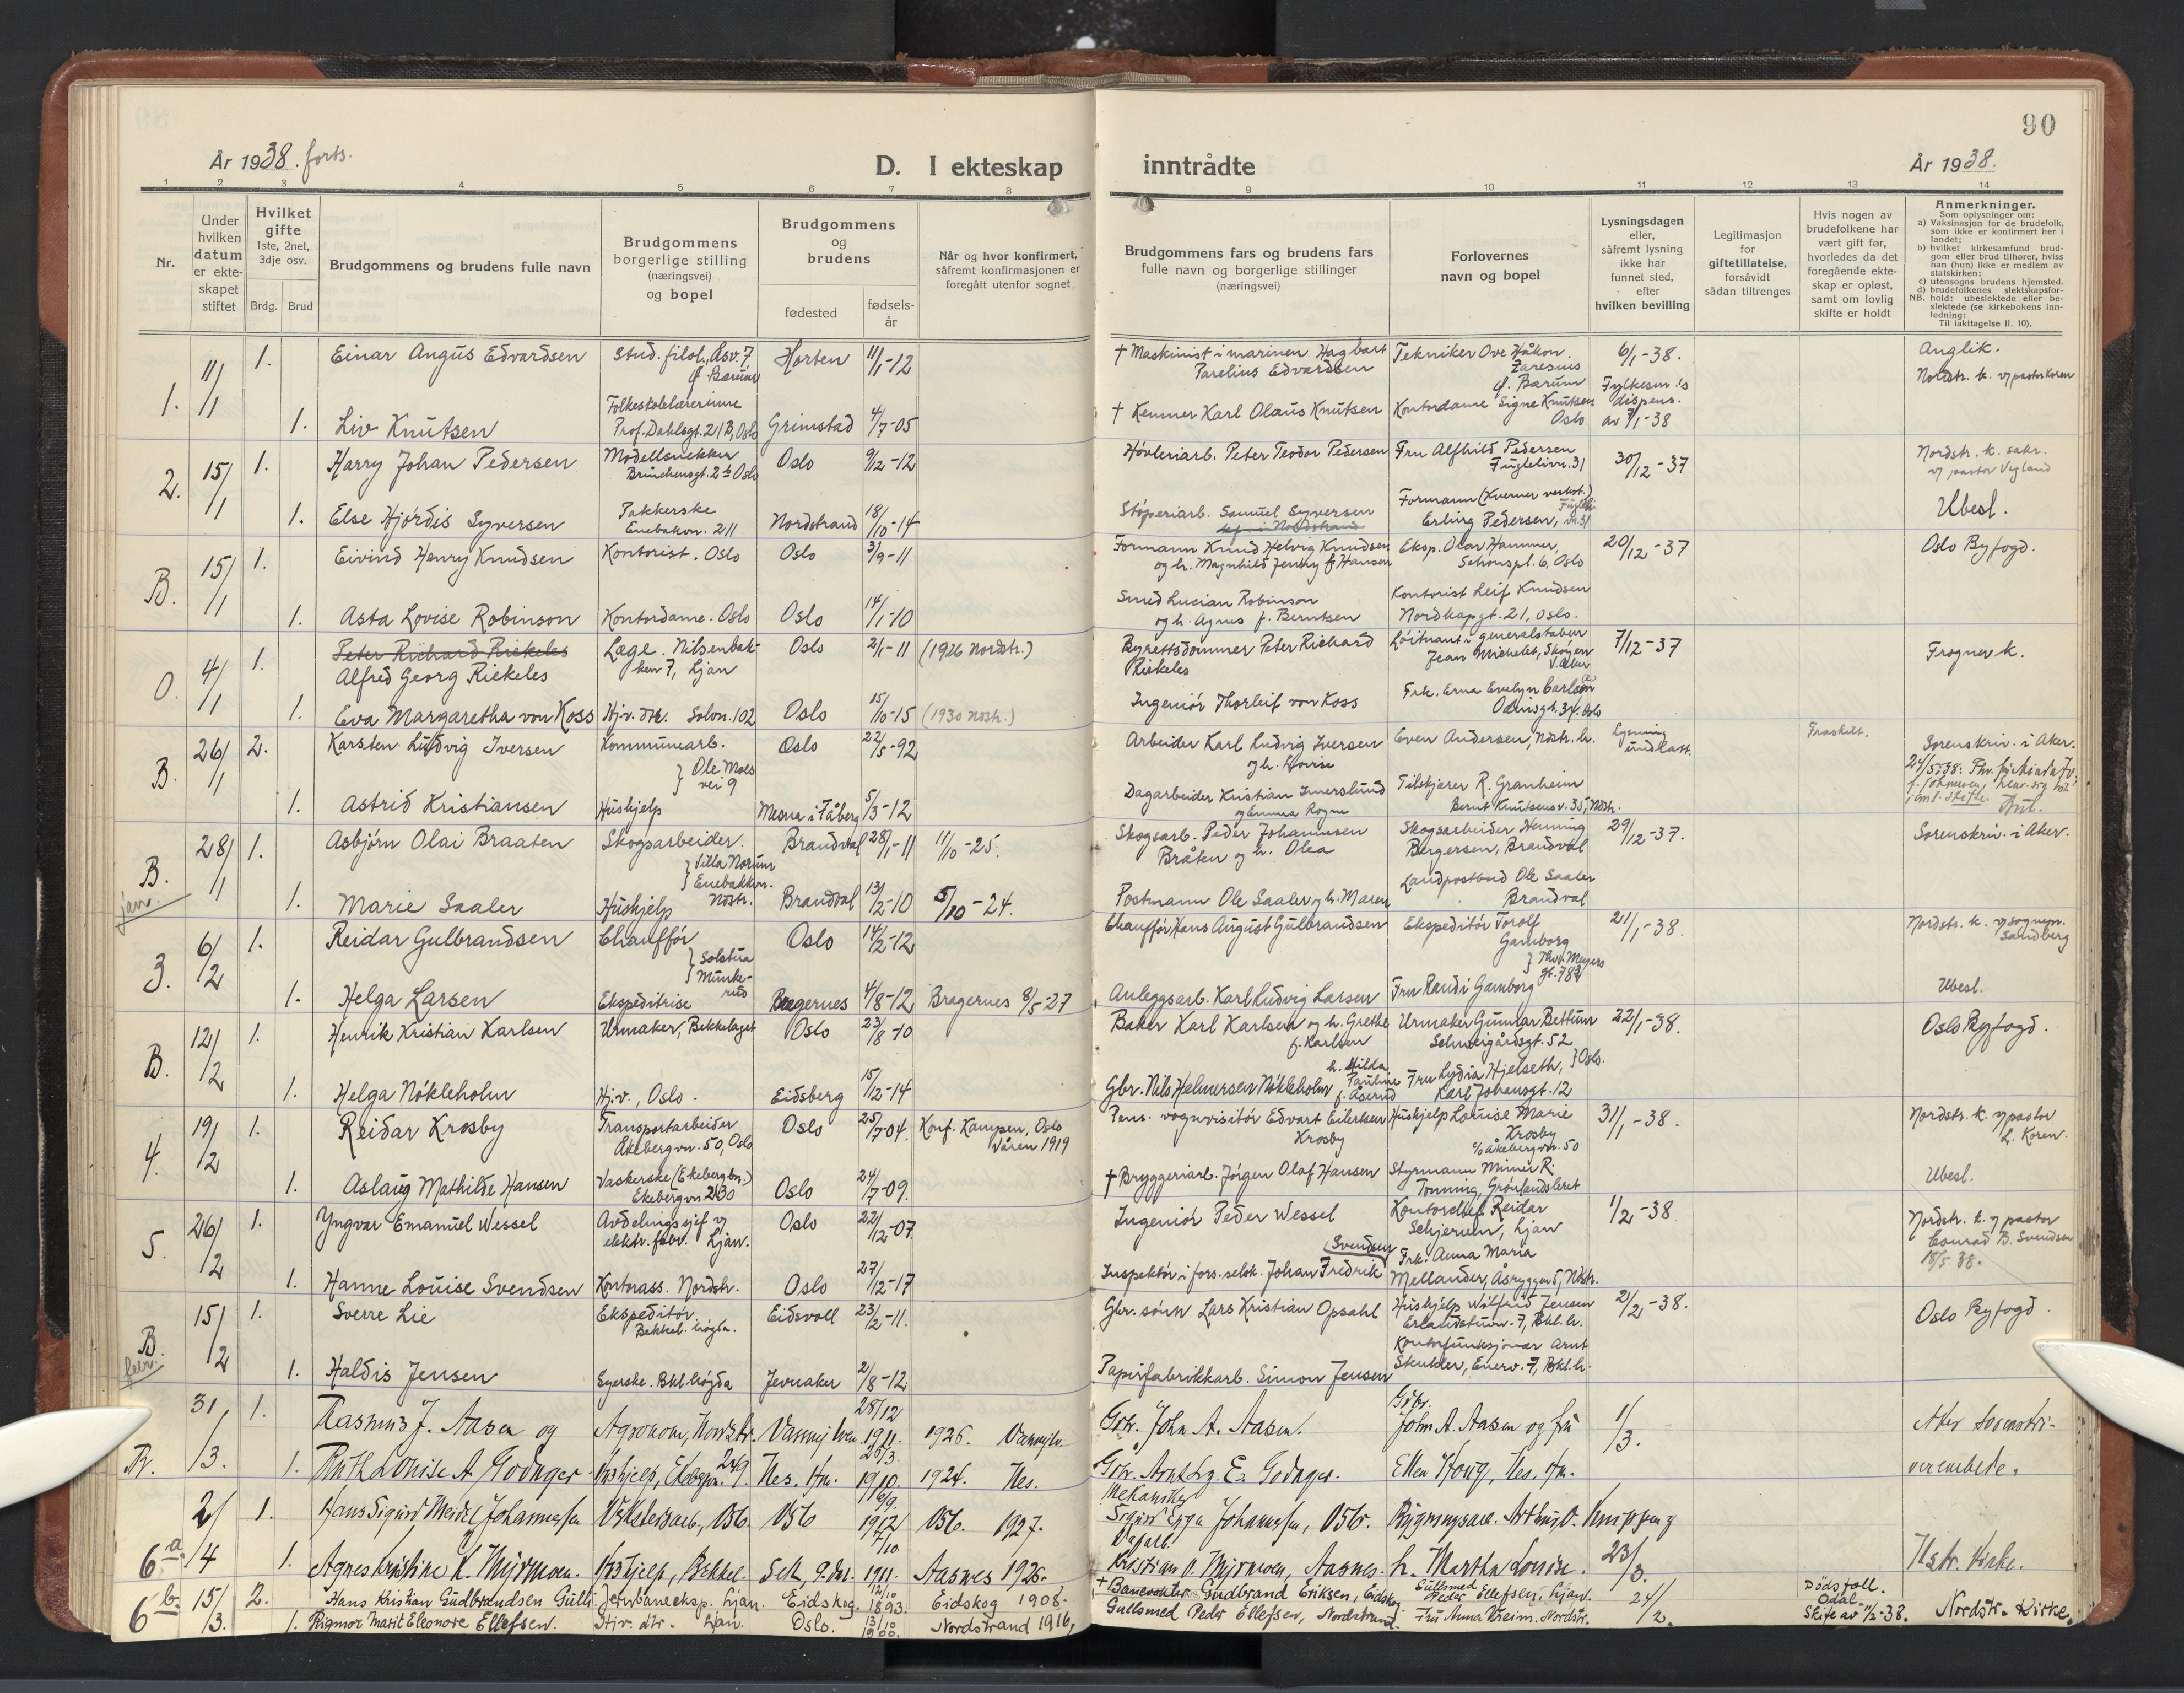 90
År 1938. forts.
D. I ekteskap
inntrådte
År 1938.
1 2 3 4 5 6 7 8 9 10 11 12 13 14
Nr.
Under hvilken datum er ekteskapet stiftet
Hvilket gifte 1ste, 2net, 3dje osv.
Brdg. Brud
Brudgommens og brudens fulle navn
Brudgommens borgerlige stilling (næringsvei) og bopel
Brudgommens og brudens
fødested
fødsels-år
Når og hvor konfirmert, såfremt konfirmasjonen er foregått utenfor sognet
Brudgommens fars og brudens fars fulle navn og borgerlige stillinger (næringsvei)
Forlovernes navn og bopel
Lysningsdagen eller, såfremt lysning ikke har funnet sted, efter hvilken bevilling
Legitimasjon for giftetillatelse, forsåvidt sådan tiltrenges
Hvis nogen av brudefolkene har vært gift før, hvorledes da det foregående ekteskap er opløst, samt om lovlig skifte er holdt
Anmerkninger.
Som oplysninger om:
a) Vaksinasjon for de brudefolk, som ikke er konfirmert her i landet;
b) hvilket kirkesamfund brudgom eller brud tilhører, hviss han (hun) ikke er medlem av statskirken;
c) utensogns brudens hjemsted.
d) brudefolkenes slektskapsforhold: ubeslektede eller beslektede (se kirkebokens innledning:
NB.
Til iakttagelse II. 10).
1. 11/1 1. Einar Angus Edvardsen Stud. filol., Åsv. 7, Ø. Bærum Horten 11/1-12 † Maskinist i marinen Hagbart Parelius Edvardsen Tekniker Ove Håkon Ø. Bærum 6/1-38. Anglik.
Nordstr. k. v/ pastor Koren
1. Liv Knutsen Folkeskolelærerinne Prof. Dahlsgt. 21 B, Oslo Grimstad 4/7-05 † Kemner Karl Olaus Knutsen Kontordame Signe Knutsen Oslo Fylkesm.'s dispens. av 7/1-38
2. 15/1 1. Harry Johan Pedersen Modellsnekker Oslo 9/12-12 Høvleriarb. Peter Teodor Pedersen Fru Alfhild Pedersen Fuglelivn. 31 30/12-37 Nordstr. k. sakr. v/ pastor Vegland
1. Else Hjørdis Syversen Pakkerske Enebakvn. 211 Nordstrand 18/10-14 Støperiarb. Samuel Syversen Formann (Kværner verkst.) Erling Pedersen, Ubesl.
B. 15/1 1. Eivind Henry Knudsen Kontorist. Oslo Oslo 3/9-11 Formann Knud Helvig Knudsen og h. Magnhild Jenny f. Hansen Eksp. Olav Hammer, Schouspl. 6, Oslo 20/12-37 Oslo Byfogd.
1. Asta Lovise Robinson Kontordame. Oslo Oslo 14/1-10 Smed Lucian Robinson og h. Agnes f. Berntsen Kontorist Leif Knudsen Nordkapgt. 21, Oslo.
O. 4/1 1. Peter Richard Riekeles
Alfred Georg Riekeles Læge. Nilsenbakken 7, Ljan Oslo 2/1-11 (1926 Nordstr.) Byrettsdommer Peter Richard Riekeles Løitnant i generalstaben Jean Michelet, Skøyen V. Aker 7/12-37 Frogner k.
1. Eva Margaretha von Koss Hj.v. dtr. Solvn. 102 Oslo 15/10-15 (1930 Nostr.) Ingeniør Thorleif von Koss Frk. Erna Evelyn Carlsen Odinsgt. 34. Oslo
B. 26/1 2. Karsten Ludvig Iversen Kommunearb. } Ole Moes vei 9 Oslo 22/5-92 Arbeider Karl Ludvig Iversen og h. Lovise Even Andersen, Nostr. h. Lysning undlatt. Fraskilt. Sorenskriv. i Aker.
1. Astrid Kristiansen Hushjelp Mesna i Fåberg 5/3-12 Dagarbeider Kristian Imerslund og Emma Rogne Tilskjærer R. Granheim Bernt Knutsensv. 35, Nostr.
B. 28/1 1. Asbjørn Olai Braaten Skogsarbeider. } Villa Norum Enebakkvn. Nostr. Brandval 28/1-11 11/10-25. Skogsarb. Peder Johannesen Bråten og h. Olea Skogsarbeider Henning Bergersen, Brandval 29/12-37. Sorenskriv. i Aker.
janr.
1. Marie Saaler Hushjelp Brandval 13/2-10 5/10-24. Postmann Ole Saaler og h. Maren Landpostbud Ole Saaler Brandval
3. 6/2 1. Reidar Gulbrandsen Chauffør } Solstua Munkerud Oslo 14/2-12 Chauffør Hans August Gulbrandsen Ekspeditør Torolf Gamborg } Thv. Meyers gt. 78 21/1-38. Nordstr. k. v/ sognepr. Sandberg
1. Helga Larsen Ekspeditrise Bragernes 4/8-12 Bragernes 8/5-27 Anleggsarb. Karl Ludvig Larsen Fru Randi Gamborg Ubesl.
B. 12/2 1. Henrik Kristian Karlsen Urmaker, Bekkelaget Oslo 23/8-10 Baker Karl Karlsen og h. Grethe f. Karlsen Urmaker Gunnar Bettum Schweigårdsgt. 52 22/1-38. Oslo Byfogd.
1. Helga Nøkleholm Hj.v., Oslo. Eidsberg 15/12-14 Gbr. Nils Helmersen Nøkleholm h. Hilda Pauline f. Åserud Fru Lydia Hjelseth, } Oslo. Karl Johansgt. 12
4. 19/2 1. Reidar Krosby Transportarbeider Åkebergvn. 50, Oslo Oslo 25/7-04. Konf. Kampen, Oslo Våren 1919 Pens. vognvisitør Edvart Eilertsen Krosby Hushjelp Louise Marie Krosby c/o Åkebergvn. 50 31/1-38. Nordstr. k. v/ pastor L. Koren.
1. Aslaug Mathilde Hansen Vaskerske (Ekebergbn.) Oslo 24/7-09. † Bryggeriarb. Jørgen Olaf Hansen Styrmann Mimer R. Tonning, Grønlandsleret Ubesl.
5. 26/2 1. Yngvar Emanuel Wessel Avdelingssjef v/ elektr. fabr. Ljan. Oslo 22/12-07. Ingeniør Peder Wessel Kontorchef Reidar Schjerven, Ljan 1/2-38 Nordstr. k. v/ pastor Conrad B. Svendsen
1. Hanne Louise Svendsen Kontorass. Nordstr. Oslo 27/12-17 Inspektør i fors. selsk. Johan Fredrik Svendsen Frk. Anna Maria Mellander, Åsryggen 5, Nostr.
B. 15/2 1. Sverre Lie Ekspeditør. Bekkel. høgda. Eidsvoll 23/2-11. Gbr. sønn Lars Kristian Opsahl Hushjelp Wilfrid Jensen 2/2-38. Oslo Byfogd.
febr.
1. Haldis Jensen Syerske. Bkl. høgda Jevnaker 2/8-12 Papirfabrikkarb. Simon Jensen Kontorfunksjonær Arnt Stenkler, Enerv. 7, Bkl. h.
B. 31/3. 1. Rasmus J. Aasen og Agronom, Nordstr. 28/12 1911. 1926. Gbr. John A. Aasen. Gbr. John A. Aasen og fru 1/3. Aker Sorenskri-
1. Ruth Louise A. Godager Hushjelp, Nes, Hm. 1910. 1924. Nes. Ellen Haug, Nes, Hm. verembede.
6a 2/4 1. Hans Sigurd Meidel Johannessen Verkstedsarb., Oslo. Oslo 6/9. 1912 Oslo. 1927. Mekaniker Johannessen, Oslo.
1. Agnes Kristine K. Myrmoen. Hushjelp, Bekkel. 1911. Aasnes 1926. Dagarb. Kristian O. Myrmoen, Aasnes. h. Martha Lovise. 23/3. Nstr. Kirke.
6b. 15/3. 2. Hans Kristian Gudbrandsen Gulli. Jernbaneeksp. Ljan. Eidskog. 12/10 1893. Eidskog 1908. † Banevokter Gudbrand Eriksen, Eidskog. Gullsmed Peder Ellefsen, Ljan. 24/2. Dødsfall. Skifte av 11/2-38. Nordstr. Kirke.
1. Rigmor Marit Eleonore Ellefsen. Hjv. dtr. Ljan. Oslo. 13/10 1900. Nordstrand 1916, Gullsmed Peder Ellefsen, Nordstrand. Fru Anna Vreim. Nordstr.